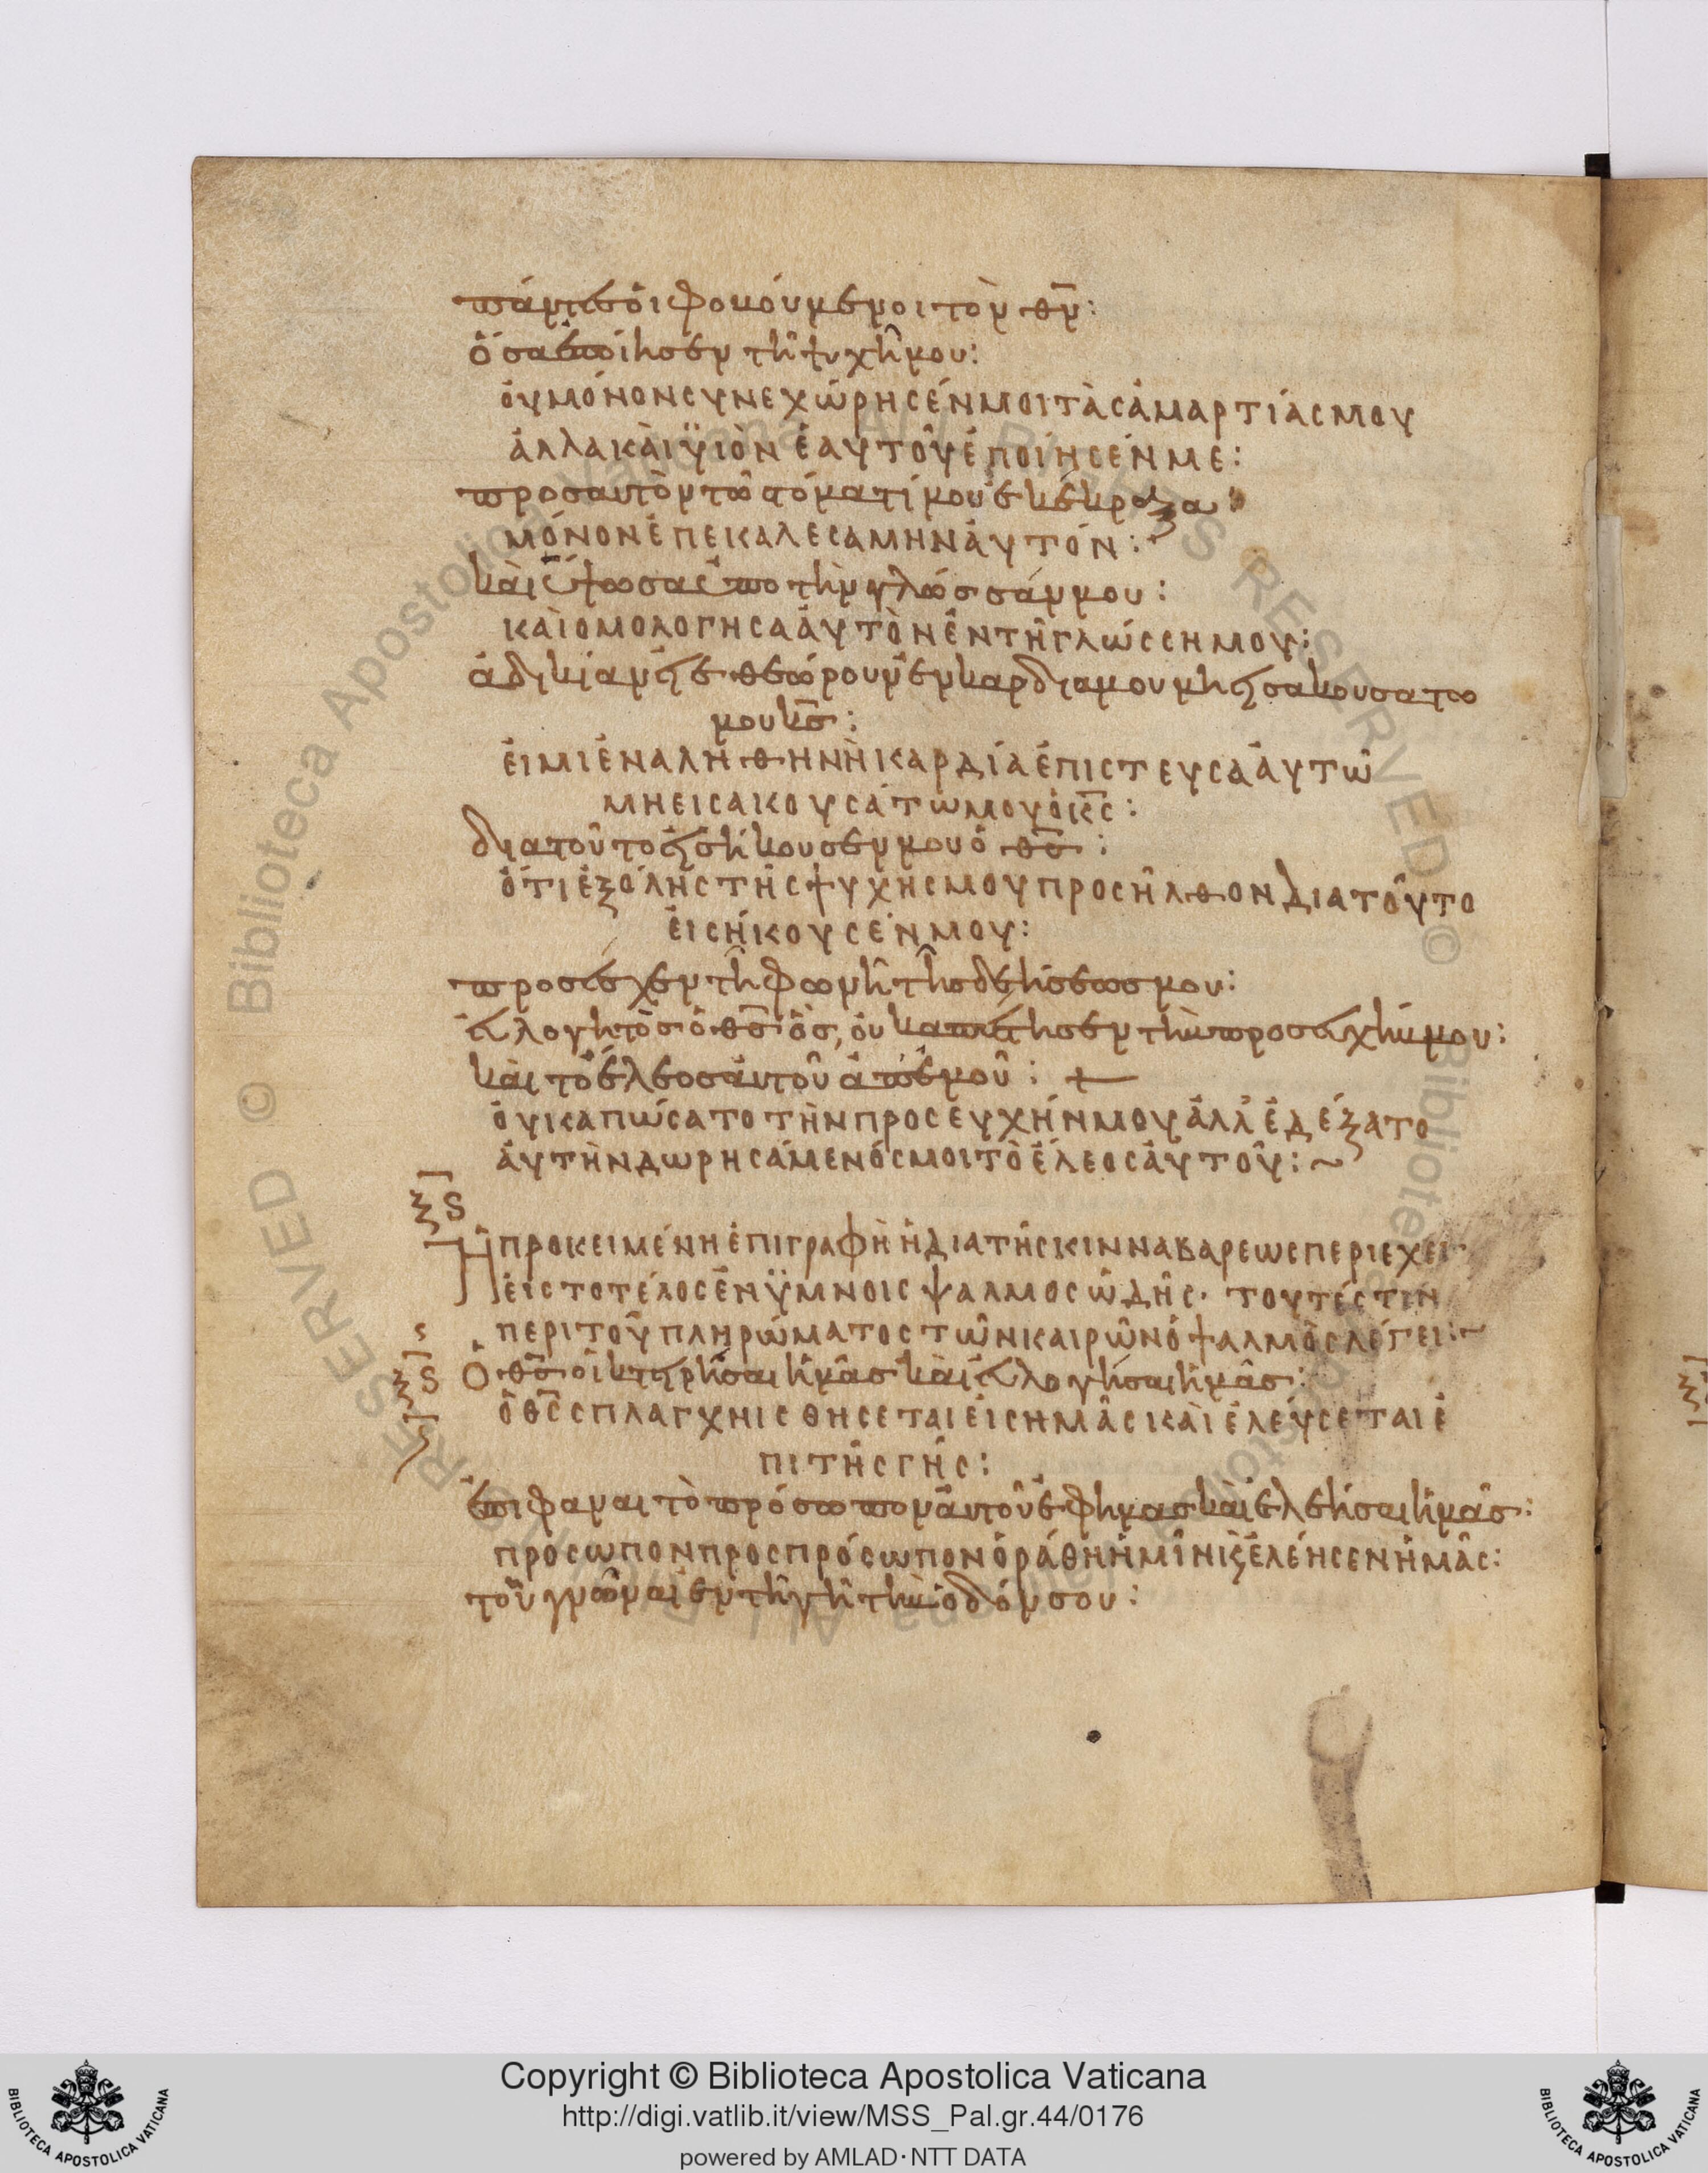 πάντεσ ὁι φοβούμενοι τὸν θν:
ὅσα ἐποίησεν τῆ ψυχῆ μου:
ὀυ μόνον συνεχώρησέν μοι τὰς ἁμαρτίας μου
ἀλλα κὰι ϋιὸν ἑαυτοῦ ἐποίησέν με:
προσ αυτὸν τῶ στόματί μου ἐκέκραξα:
μόνον ἐπεκαλεσαμην ἀυτόν:
κὰι ὕψωσα ὑπο τὴν γλώσσάν μου:
καὶ ομολογησα ἀυτὸν ἐν τῆ γλώσση μου:
ἀδικίαν ἐι ἐθεώρουν ἐν καρδια μου μὴ εισακουσατω
μου κσ:
ἐι μὶ ἐν αληθηνὴ καρδία ἐπιστευσα ἀυτῶ
μη εισακουσάτω μου ὁ κς:
δια τοῦτο ἐισήκουσεν μου ὁ θσ:
ὅτι ἐξ ὅλης τῆς ψυχης μου προσῆλθον δια τοῦτο
ἐισήκουσέν μου:
προσέσχεν τῆ φωνῆ τῆσ δεήσεωσ μου:
ἐυλογητὸσ ὁ θσ ὃσ, ὀυκ απέστησεν τὴν προσευχήν μου:
κὰι τὸ ἔλεοσ ἀυτοῦ ἀπ' ἐμοῦ: +
ὀυκ απώσατο τὴν προσευχήν μου ἀλλ' ἐδέξατο
ἀυτὴν δωρησάμενός μοι τὸ ἔλεος ἀυτοῦ: ~
ξς
Ἡ προκειμένη ἐπιγραφὴ ἡ δια τῆς κινναβαρεως περιεχει
ἐις το τέλος ἐν ϋμνοις ψαλμος ὠδῆς· τουτέστιν
περι τοῦ πληρώματος τῶν καιρῶν ὁ ψαλμὸς λέγει: ~
ξς Ὁ θσ ὀικτειρῆσαι ἡμᾶσ κὰι ἐυλογήσαι ἡμᾶσ:
ὁ θς σπλαγχνισθησεται ἐις ημᾶς κὰι ἐλεύσεται ἐ
πι τῆς γῆς:
ἐπιφαναι τὸ πρόσωπον ἀυτοῦ ἐφ ημασ κὰι ἐλεήσαι ἡμᾶσ:
προσωπον προς πρόσωπον ὁράθη ἡμῖν κ ἐλέησεν ἡμᾶς:
τοῦ γνῶναι ἐν τῆ γῆ τὴν ὁδόν σου:
Copyright © Biblioteca Apostolica Vaticana
http://digi.vatlib.it/view/MSS_Pal.gr.44/0176
powered by AMLAD·NTT DATA